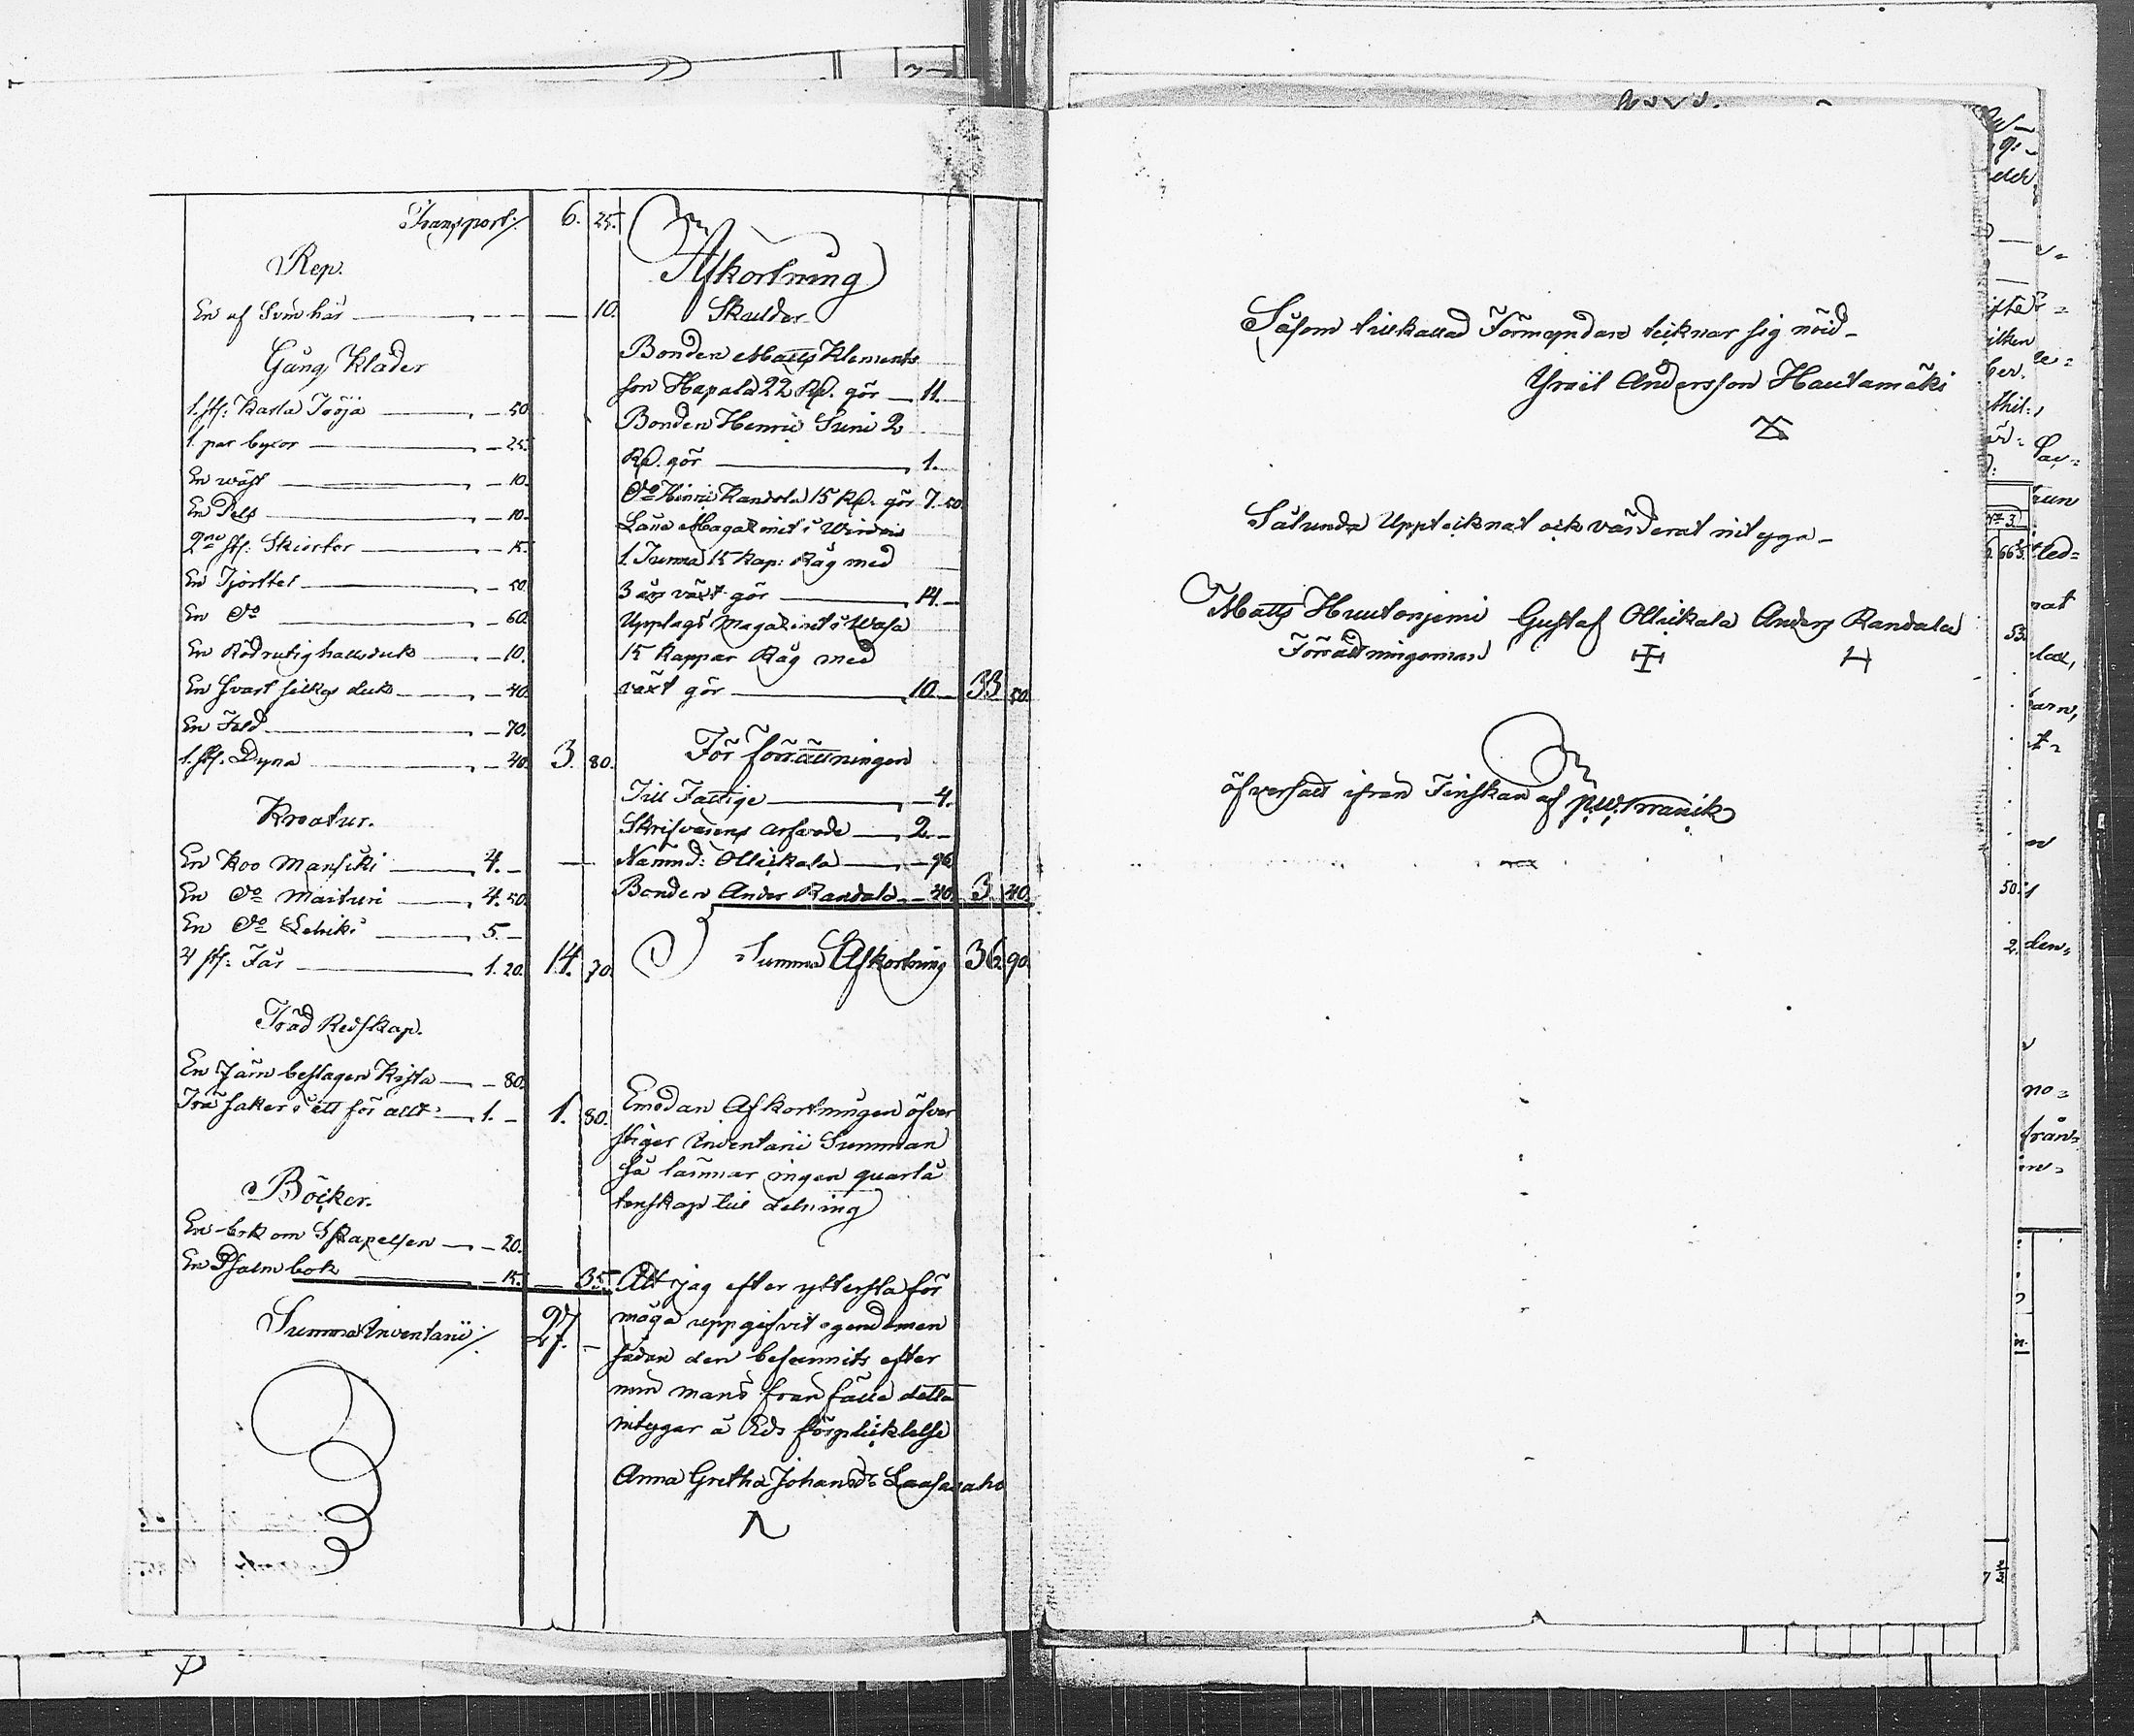 Transport 6. 25.
Rep.
En af Svinhår — 10.
Gång Kläder
1. st: Karla Tröja — 50
1. par byxor — 25.
En wäst — 10.
En Pels — 10.
2ne st: Skiortor — 15.
En Tjorttel — 50.
En do — 60.
En Rödrutig hallsduk — 10.
En svart silkes duk — 40.
En Feld — 70.
1. st. Dyna — 40. 3. 80.
Kreatur.
En Koo Mansiki — 4. —
En do Maituri — 4. 50.
En do Lehiki — 5. —
4 st: Får — 1. 20. 14. 70.
Träd Redskap.
En Järn beslagen Kista — 80.
Trä saker i ett för allt — 1. — 1. 80.
Böcker.
En bok om Skapelsen — 20.
En Psalm bok — 15. — 35.
Summa Inventarii 27. —
Afkortning
Skulder
Bonden Matts Klements
son Hapala 22 Rd. gör — 11. —
Bonden Henric Suni 2
Rd. gör — 1. —
do Hinric Randola 15 Rd. gör 7. 50
Låne Magazinet i Windois
1. Tunna 15 Kap: Råg med
3 års växt gör — 14. —
Upplags Magazinet i Wasa
15 Kappar Råg med
växt gör — 10. — 33 50.
För förrättningen
Till Fattige — 4.
Skrifvarens arfvode — 2. —
Nämnd: Ollikala — 96
Bonden Anders Randala — 40. 3. 40.
Summa Afkortning 36. 90.
Emedan Afkortningen öfver
stiger Inventarii Summan
så lämnar ingen quarlå
tenskap till delning
Att jag efter yttersta för
måga uppgifvit egendomen
sådan den befunnits efter
min mans frånfälle detta
intygar å Eds förpliktelse
Anna Gretha Johansdr Laasanaho
Såsom tillkallad Förmyndare teiknar sig nöid
Ysrail Andersson Hautamäki
Sålunda Uppteiknat ock värderat intyga
Matts Huutonjemi Gustaf Ollikala Anders Randala
Förrättningsman
öfversatt ifrån Finskan af